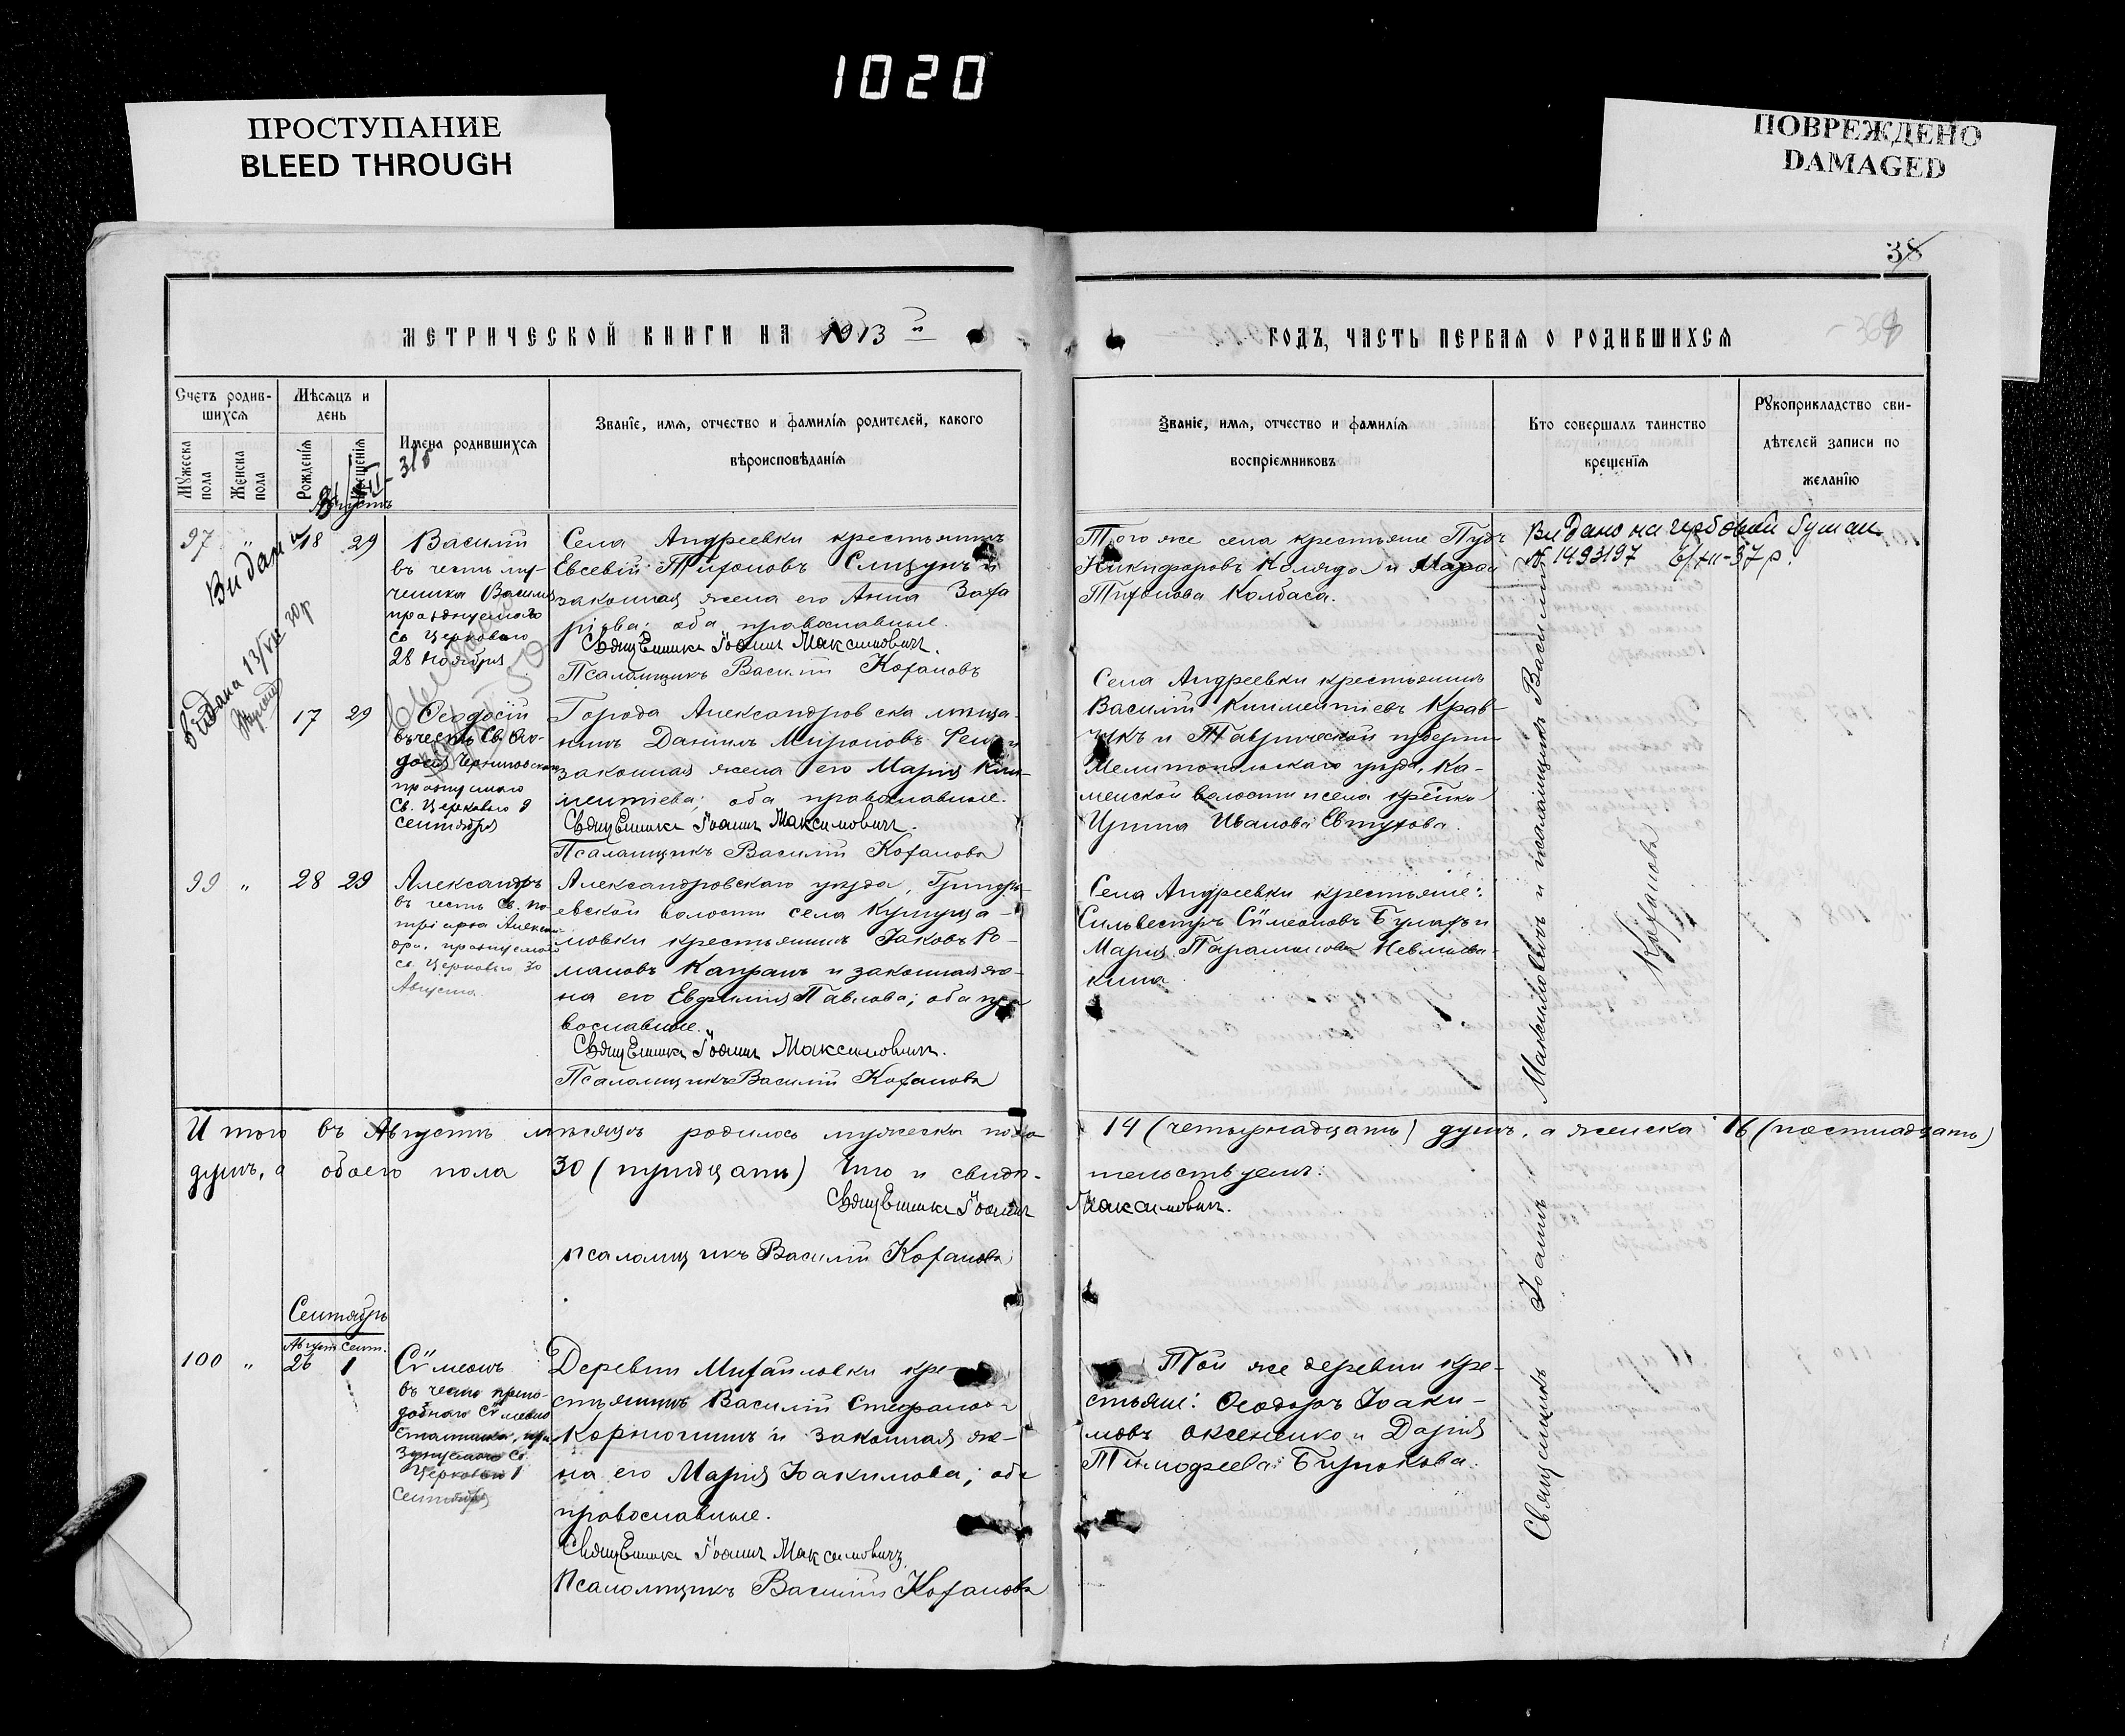 1020
ПРОСТУПАНИЕ
BLEED THROUGH
ПОВРЕЖДЕНО
DAMAGED
38
МЕТРИЧЕСКОЙ КНИГИ НА 1913 й
ГОДЪ, ЧАСТЬ ПЕРВАЯ О РОДИВШИХСЯ
Счетъ родив-
шихся
Мужеска пола
Женска пола
Мѣсяцъ и
день
Рожденія
Крещенія
Имена родившихся
Званіе, имя, отчество и фамилія родителей, какого
вѣроисповѣданія
Званіе, имя, отчество и фамилія
воспріемниковъ
Кто совершалъ таинство
крещенія
Рукоприкладство сви-
дѣтелей записи по
желанію
Августъ
97 " 18 29
Василій
въ честь му-
ченика Василія
празднуемаго
Св. Церковью
28 Ноября
Села Андреевки крестьянинъ
Евсевій Тихоновъ и
законная жена его Анна Заха
ріева; оба православные.
Священникъ Іоаннъ Максимовичъ.
Псаломщикъ Василій Кохановъ
Того же села крестьяне
Никифоровъ Коляда и Марѳа
Тихонова Колбаса.
Видано на гербовой бумаги
№ 1493197 6/XII-37 р.
Видана 13/VIII 30р
17 29
Ѳеодосій
въ честь Св. Ѳео-
досія Черниговскаго
празднуемаго
Св. Церковью 9
Сентября
Города Александровска мѣща-
нинъ Даніилъ Мироновъ и
законная жена его Марія Кли-
ментіева; оба православные.
Священникъ Іоаннъ Максимовичъ.
Псаломщикъ Василій Кохановъ
Села Андреевки крестьянинъ
Василій Климентіевъ Крав-
чикъ и Таврической губерніи
Мелитопольскаго уѣзда, Ка-
менской волости и села
Иванова Евтухова.
99 " 28 29
Александръ
въ честь Св. па-
тріарха Алексан-
дра, празднуемаго
Св. Церковью 30
Августа.
Александровскаго уѣзда,
евской волости села
мовки крестьянинъ Іаковъ Ро-
мановъ Капранъ и законная же-
на его Евфимія Павлова; оба пра
вославные.
Священникъ Іоаннъ Максимовичъ.
Псаломщикъ Василій Кохановъ
Села Андреевки крестьяне:
Сильвестръ Сѵмеоновъ и
Марія
кина
Священникъ Іоаннъ Максимовичъ и псаломщикъ Василій
Кохановъ
Итого въ Августѣ мѣсяцѣ родилось мужеска пола 14 (четырнадцать) душъ, а женска 16 (шестнадцать)
душъ, а обоего пола 30 (тридцать) Что и свидѣ-
тельствуемъ:
Священникъ Іоаннъ Максимовичъ.
псаломщикъ Василій Кохановъ
Сентябрь
Август Сент.
100 " 26 1
Сѵмеонъ
въ честь препо-
добнаго Сѵмеона
Столпника, пра
зднуемаго Св.
Церковью 1
Сентября
Деревни Михайловки кре-
стьянинъ Василій Стефановъ
и законная же-
на его Марія Іоакимова; оба
православные.
Священникъ Іоаннъ Максимовичъ
Псаломщикъ Василій Кохановъ
Той же деревни кре-
стьяне: Ѳеодоръ Іоаки-
мовъ Оксененко и Дарія
Тимофеева Бирюкова.